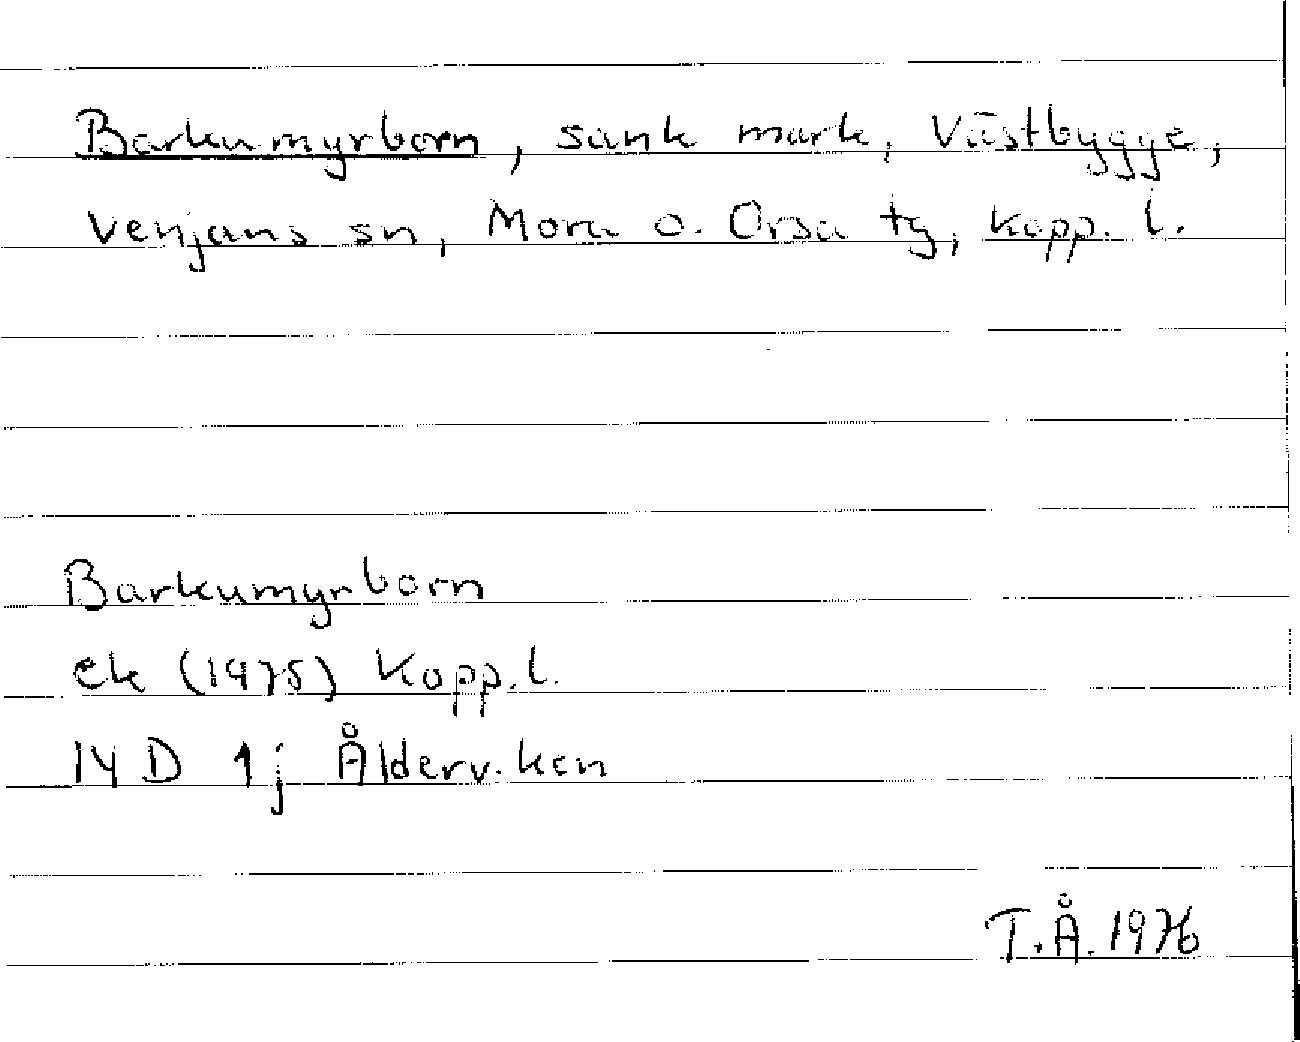 Barkumyrborn, sank mark, Västbygge,
Venjans sn, Mora o. Orsa tg, Kopp. l.
Barkumyrborn
ek (1975) Kopp. l.
14 D 1j Ålderviken
T.Å. 1976